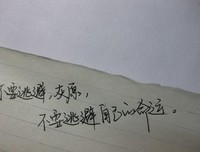 不要逃避,友原,
不要逃避自己的命运。